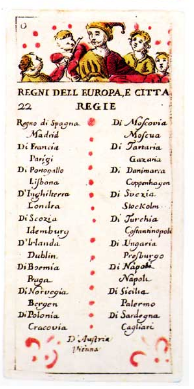 0
REGNI DELL EUROPA, E CITTA
22 REGIE
Regno di Spagna
Madrid
Di Francia
Parigi
Di Portogallo
Lisbona
D'Inghilterra
Londra
Di Scozia
Idemburg
D'Irlanda
Dublin
Di Boemia
Praga
Di Norvegia
Bergen
Di Polonia
Cracovia
Di Moscovia
Moscua
Di Tartaria
Di Danimarca
Coppenhagen
Di Svezia
Stockolm
Di Turchia
Costantinopoli
Di Ungaria
Presburgo
Di Napoli
Napoli
Di Sicilia
Palermo
Di Sardegna
Cagliari
D'Austria
Vienna